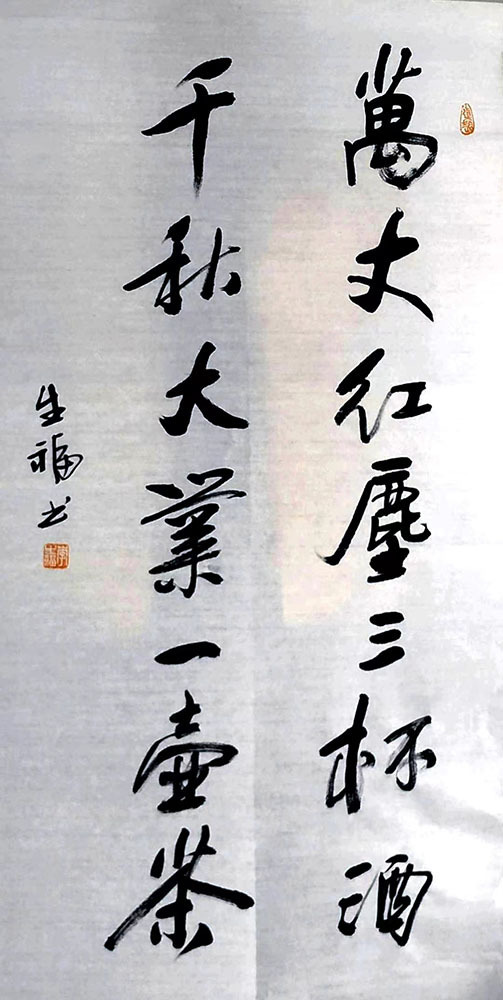 萬丈紅塵三杯酒
千秋大業一壺茶
生福书